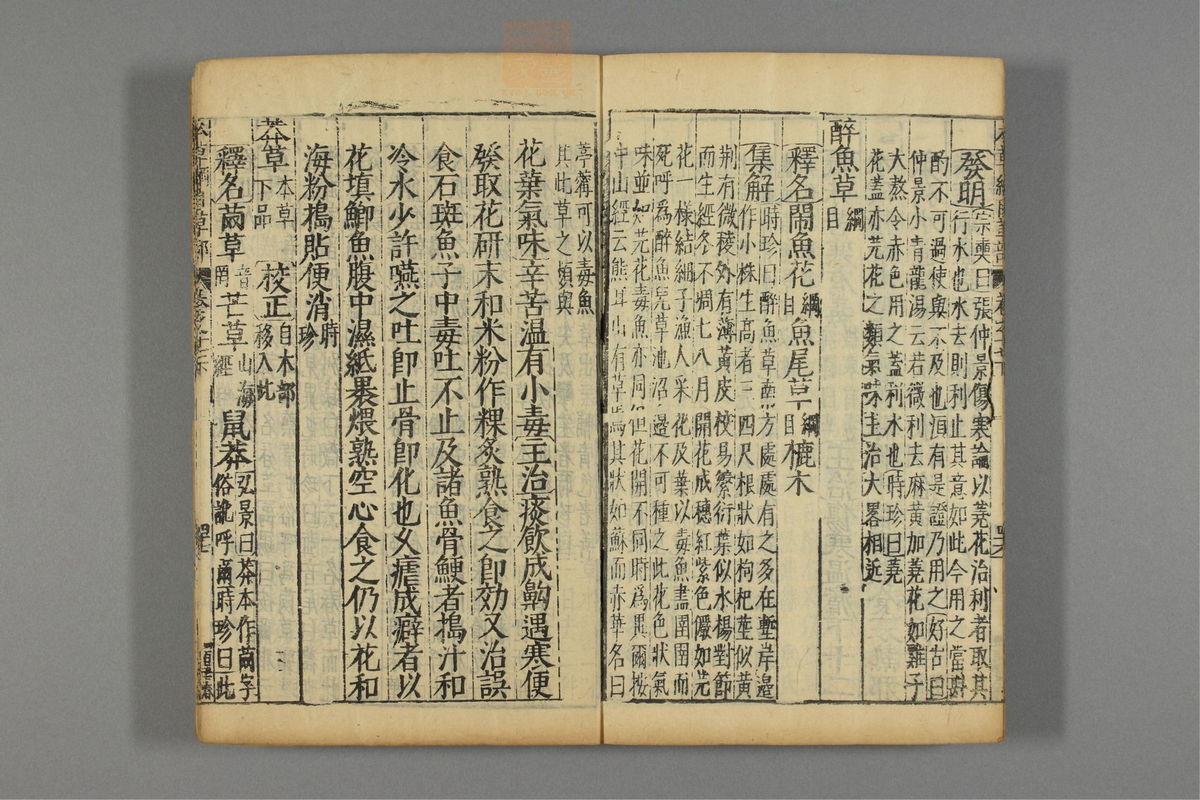 發明宗奭曰張仲景傷寒論以蕘花治利者取其
行水也水去則利止其意如此今用之當斟
酌不可過使與不及也須有是證乃用之好古曰
仲景小青龍湯云若微利去麻黃加蕘花如雞子
大熬令赤色用之蓋利水也時珍曰蕘
花蓋亦芫花之類氣味主治大畧相近
醉魚草綱目
釋名鬧魚花綱目魚尾草綱目樚木
集解時珍曰醉魚草南方處處有之多在塹岸邊
作小株生高者三四尺根狀如枸杞莖似黃
荆有微稜外有薄黃皮枝易繁衍葉似水楊對節
而生經冬不凋七八月開花成穗紅紫色儼如芫
花一様結細子漁人采花及葉以毒魚盡圉圉而
死呼爲醉魚兒草池沼邊不可種之此花色狀氣
味並如芫花毒魚亦同但花開不同時爲異爾按
中山經云熊耳山有草焉其狀如蘇而赤華名曰
葶藶可以毒魚
其此草之類與
花葉氣味辛苦温有小毒主治痰飲成齁遇寒便
發取花研末和米粉作粿炙熟食之即効又治誤
食石斑魚子中毒吐不止及諸魚骨鯁者搗汁和
冷水少許嚥之吐即止骨即化也久瘧成癖者以
花填鯽魚腹中濕紙裹煨熟空心食之仍以花和
海粉搗貼便消時珍
莽草本草下品校正自木部移入此
釋名䒽草音罔芒草山海經鼠莽弘景曰莽本作䒽字
俗訛呼䒽時珍曰此